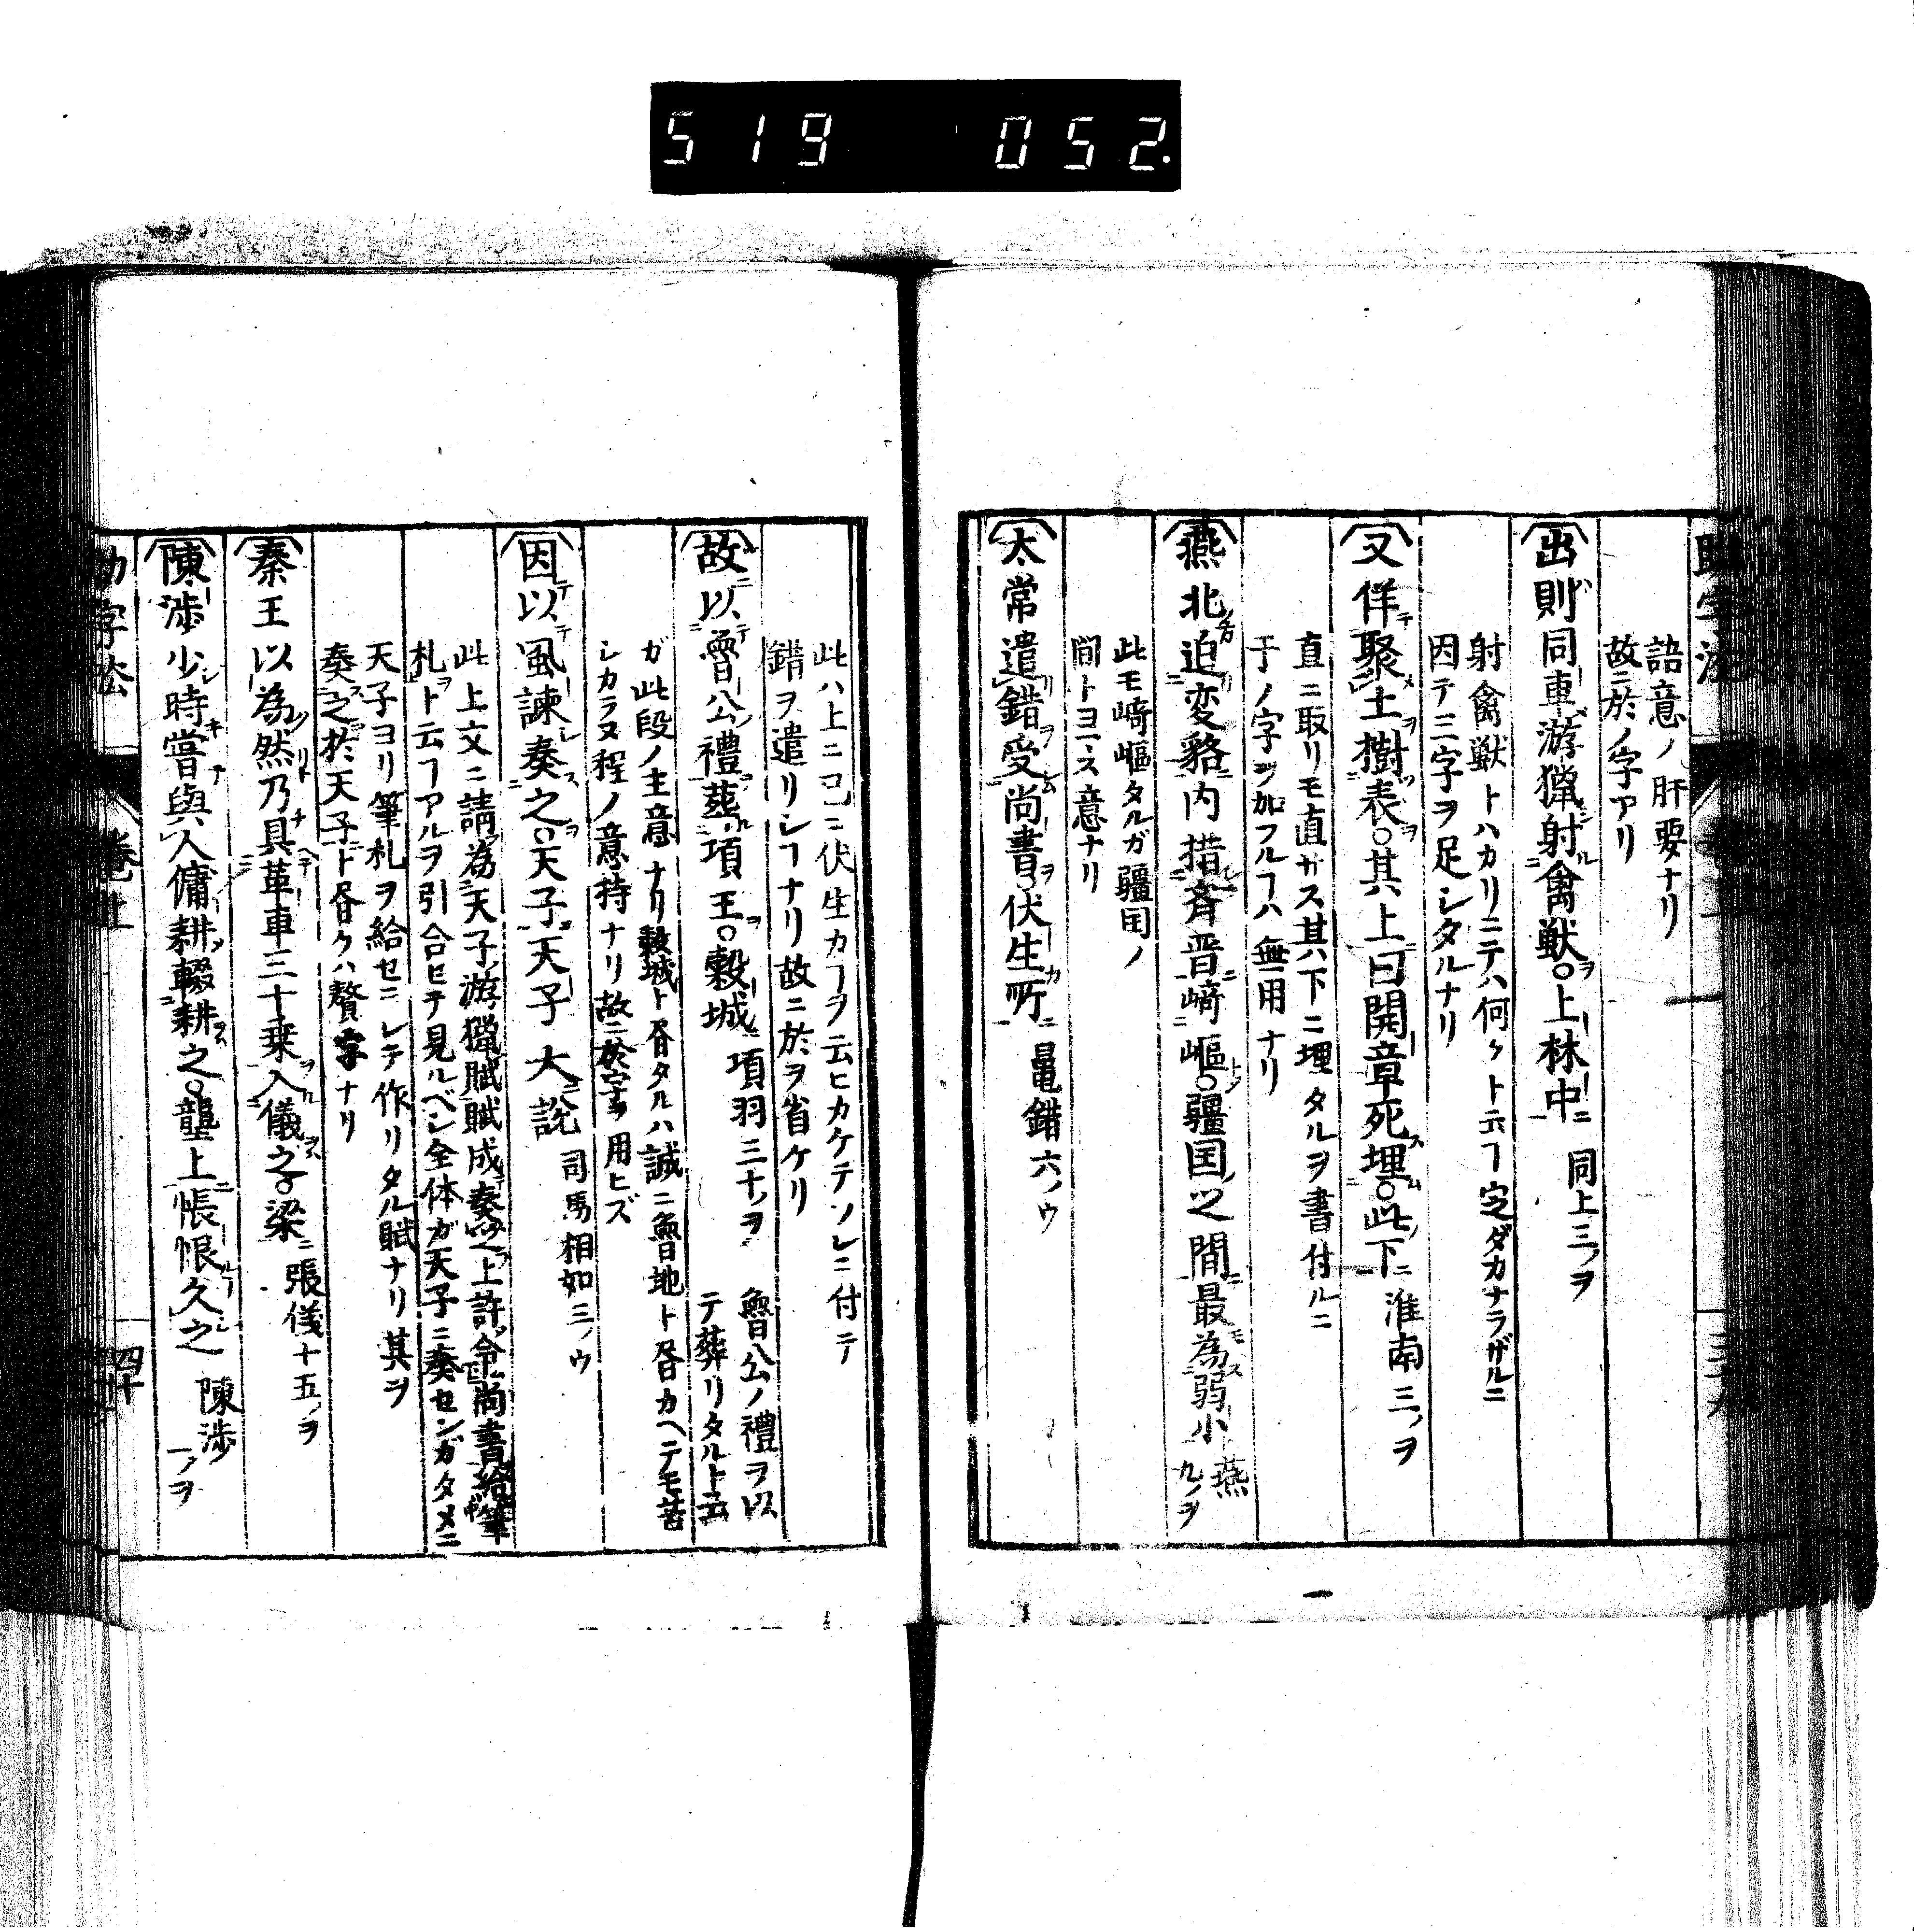 519 052.
語意ノ肝要ナリ
故ニ於ノ字アリ
出則同車游獵射禽獣○上林中 同上三ノヲ
射禽獣トハカリニテハ何クト云フ定ダカナラザルニ
因テ三字ヲ足シタルナリ
又佯聚土樹表○其上曰開章死埋○此下 淮南三ノヲ
直ニ取リモ直サス其下ニ埋タルヲ書付ルニ
于ノ字ヲ加フルヿハ無用ナリ
燕北迫変貉内措斉晋﨑嶇○疆国之間最為弱小 燕九ノヲ
此モ﨑嶇タルガ疆国ノ
間トヨミス意ナリ
太常遣錯受尚書○伏生所 鼂錯六ノウ
此ハ上ニ已ニ伏生カヿヲ云ヒカケテソレニ付テ
錯ヲ遣リシヿナリ故ニ於ヲ省ケリ
故以魯公禮葬項王○穀城 項羽三十ノヲ 魯公ノ禮ヲ以
テ葬リタルト云
ガ此段ノ主意ナリ穀城ト畧タルハ誠ニ魯地ト畧カヘテモ苦
シカラヌ程ノ意持ナリ故ニ於字ヲ用ヒズ
因以風諫奏之○天子天子大説 司馬相如三ノウ
此上文ニ請為天子游獵賦賦成奏之上許令尚書給筆
札ト云フアルヲ引合セテ見ルベシ全体ガ天子ニ奏センガタメニ
天子ヨリ筆札ヲ給セシレテ作リタル賦ナリ其ヲ
奏之於天子ト畧クハ贅字ナリ
秦王以為然乃具革車三十乗入儀之○梁 張儀十五ノヲ
陳渉少時嘗與人傭耕輟耕之○壟上悵恨久之 陳渉一ノヲ
四十